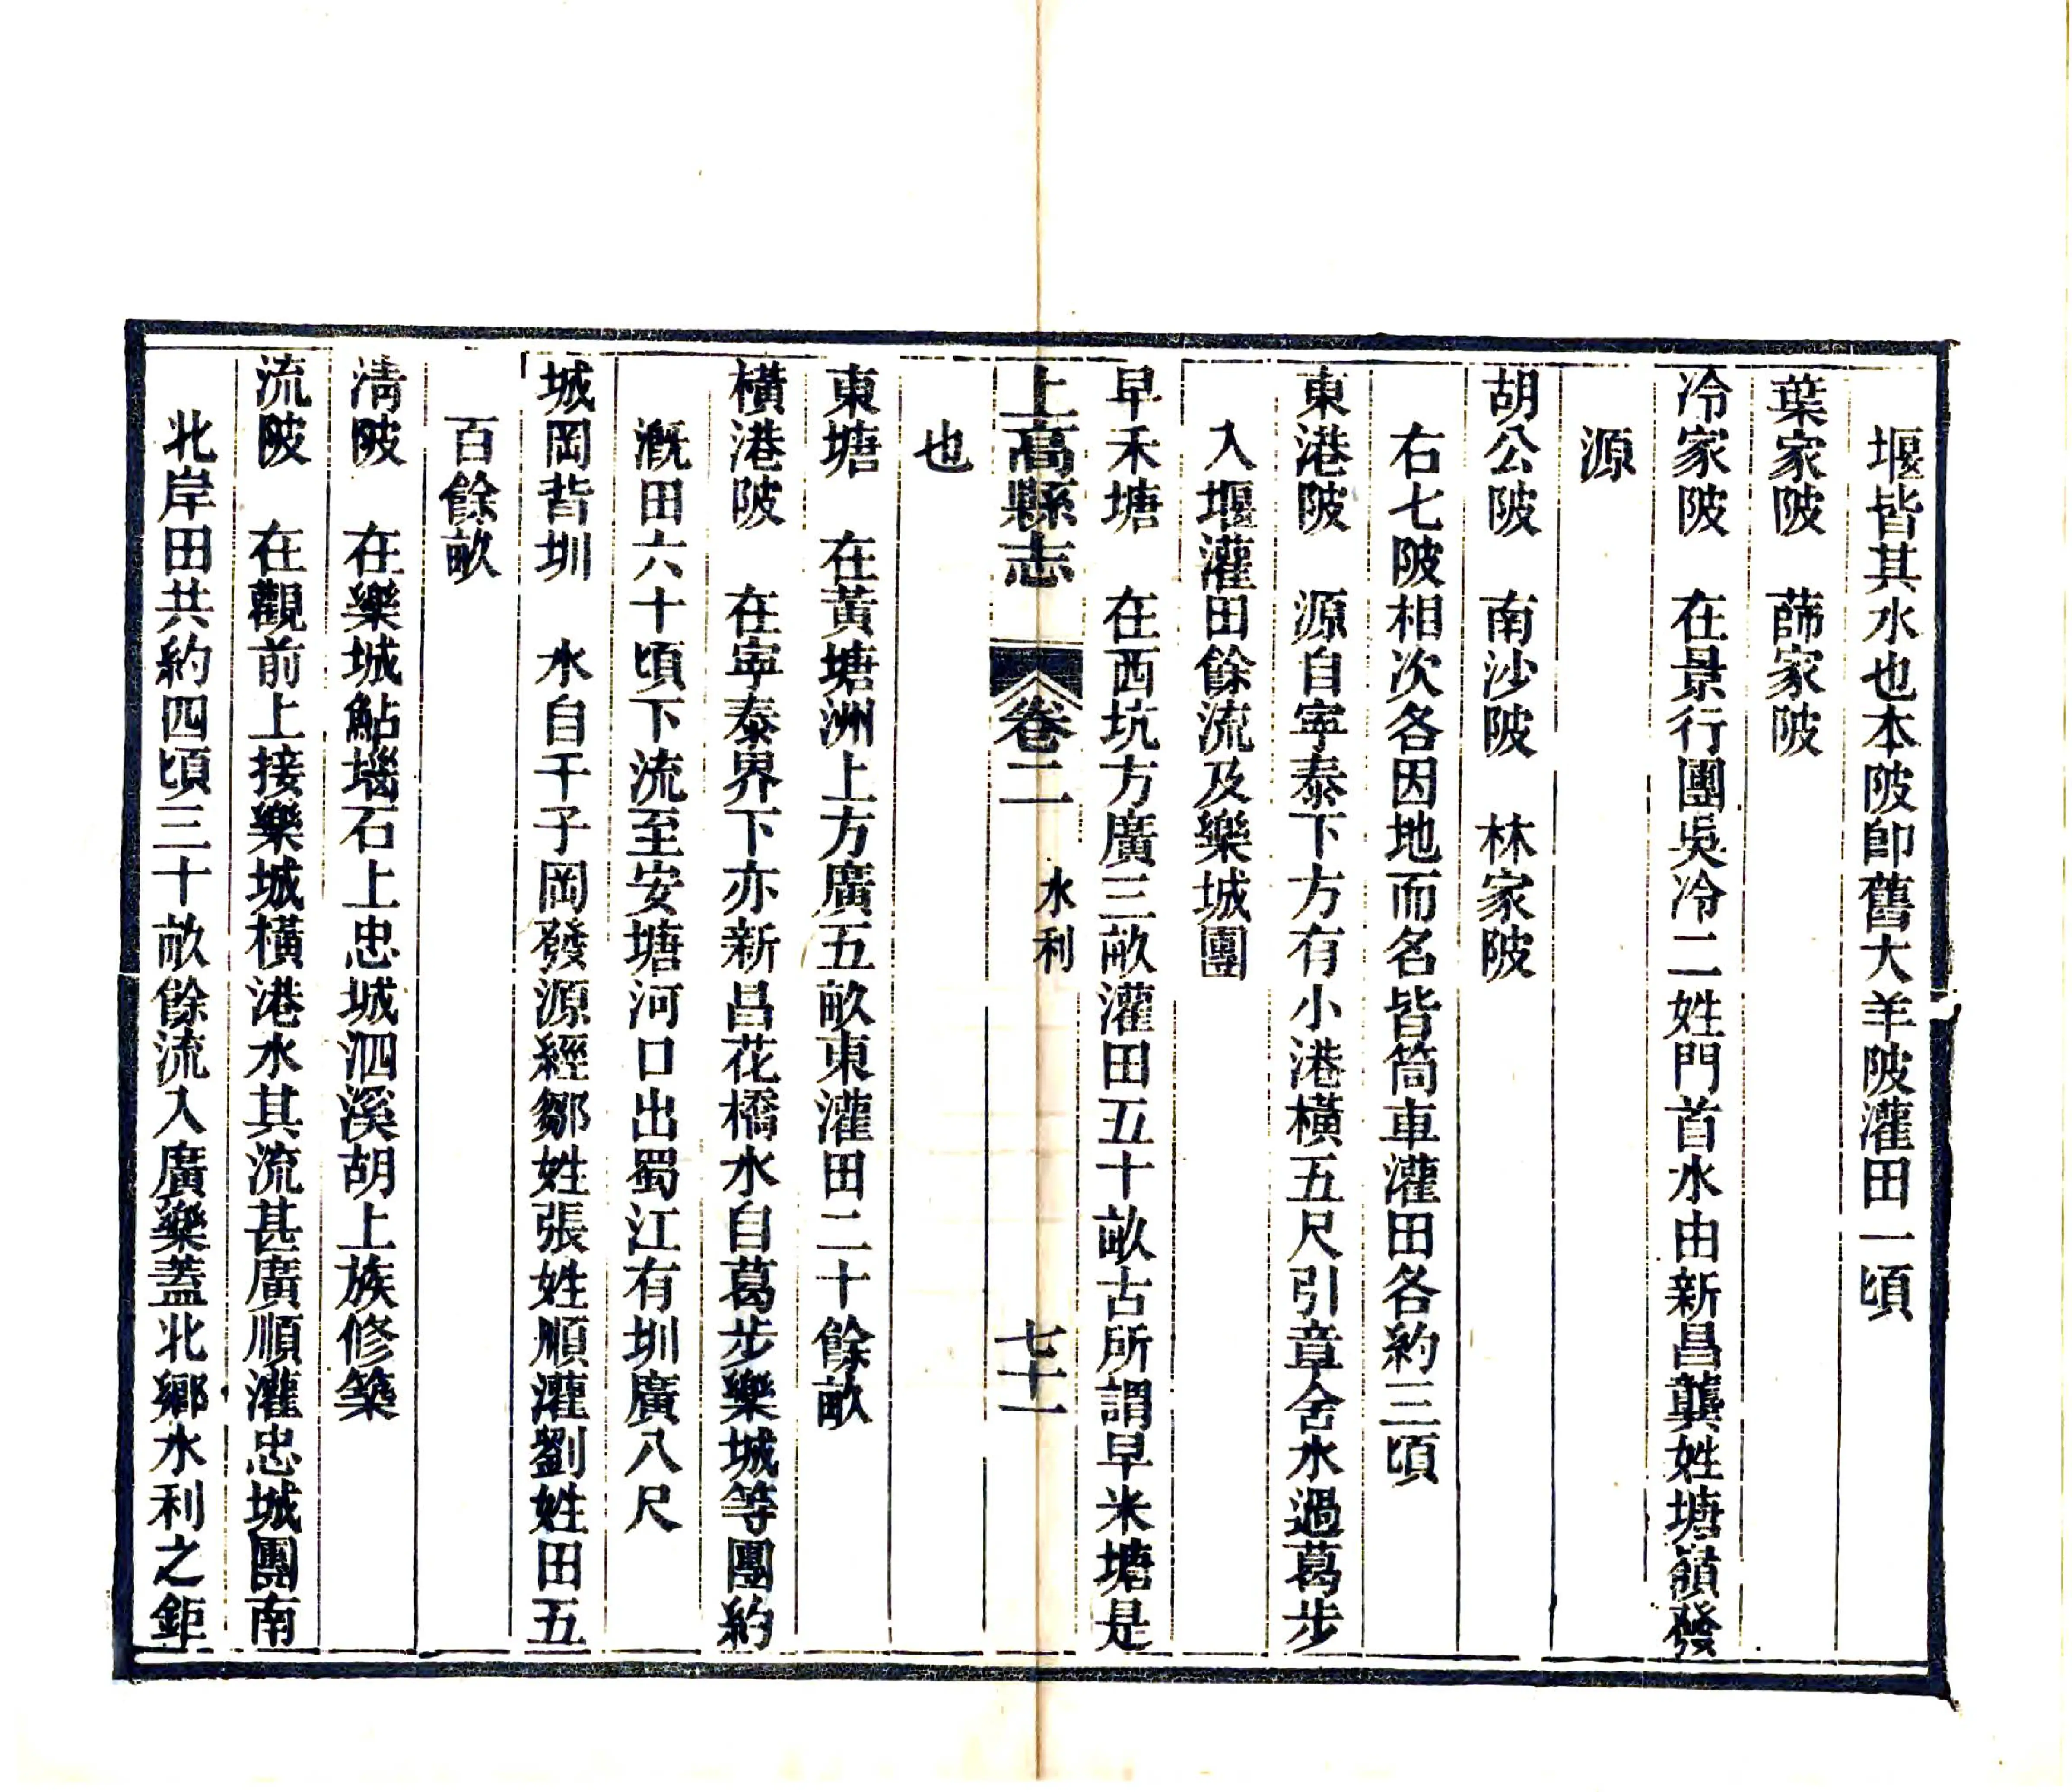 堰皆其水也本陂卽舊大羊陂灌田一頃
葉家陂　蓆家陂
冷家陂　在景行團吳冷二姓門首水由新昌龔姓塘嶺發
源
胡公陂　南沙陂　林家陂
右七陂相次各因地而名皆筒車灌田各約三頃
東港陂　源自寜泰下方有小港橫五尺引章舍水過葛步
入堰灌田餘流及樂城團
早禾塘　在西坑方廣三畝灌田五十畝古所謂早米塘是
上高縣志　卷二　水利　七十一
也
東塘　在黃塘洲上方廣五畝東灌田二十餘畝
橫港陂　在寜泰界下亦新昌花橋水自葛步樂城等團約
漑田六十頃下流至安塘河口出蜀江有圳廣八尺
城岡背圳　水自干子岡發源經鄒姓張姓順灌劉姓田五
百餘畝
淸陂　在樂城鮎堖石上忠城泗溪胡上族修築
流陂　在觀前上接樂城橫港水其流甚廣順灌忠城團南
北岸田共約四頃三十畝餘流入廣樂蓋北鄉水利之鉅